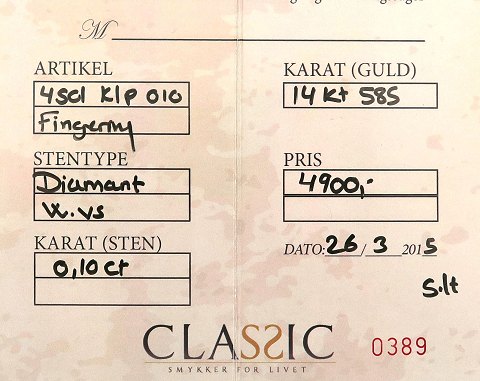 M
ARTIKEL
4scl Klp 010
Fingerring
STENTYPE
Diamant
W. vs
KARAT (STEN)
0,10 ct
KARAT (GULD)
14 kt 585
PRIS
4900,-
DATO: 26/3 2015
CLASSIC
SMYKKER FOR LIVET
0389